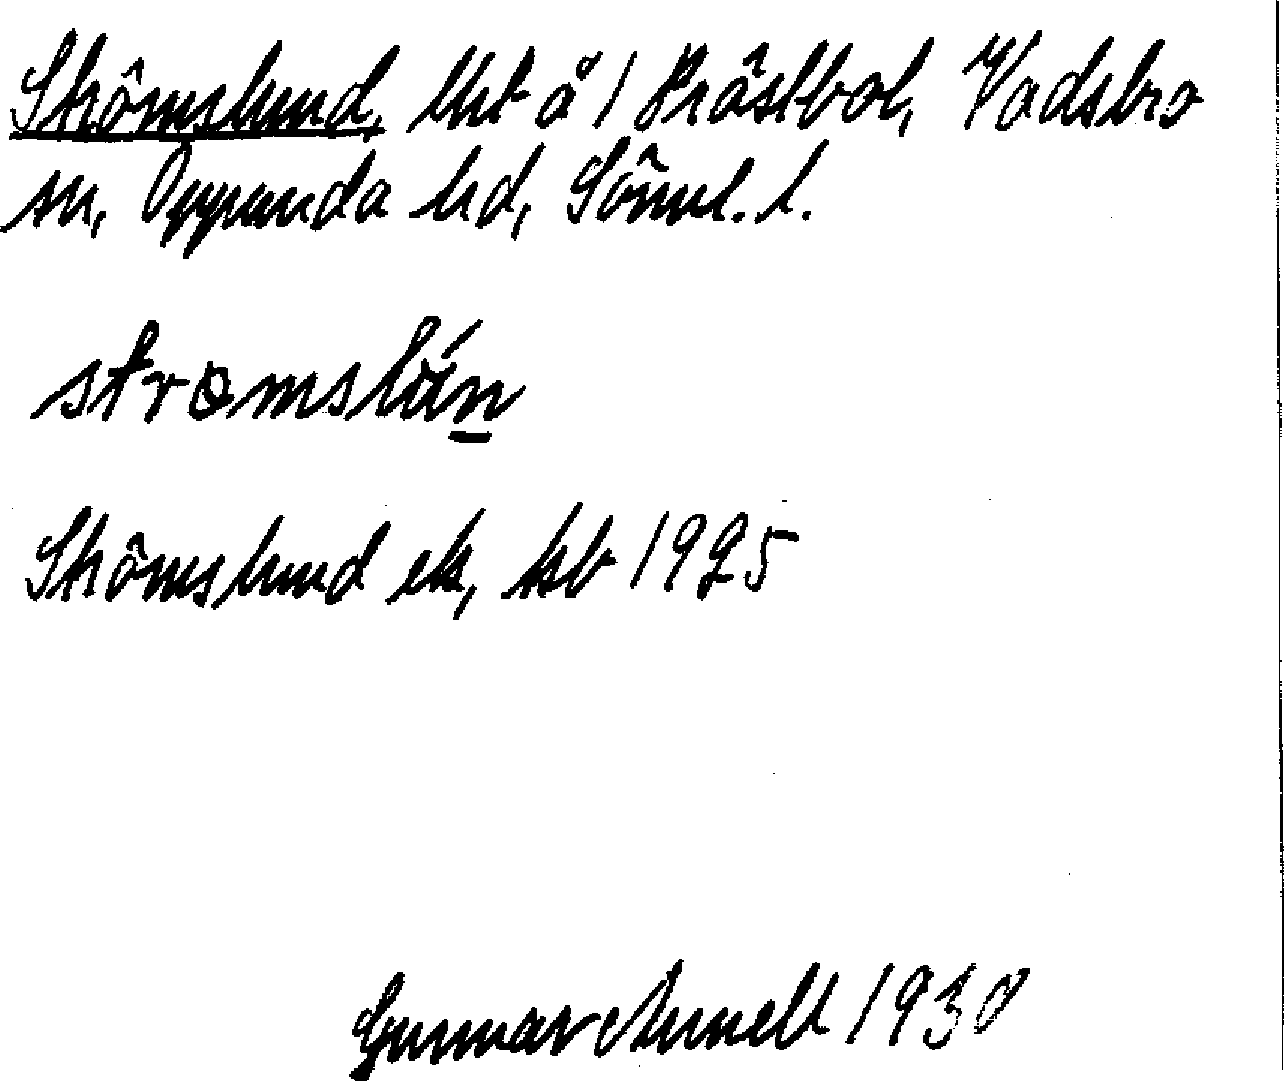 Strömslund, tht å 1 Prästbol, Vadsbro
sn, Oppunda hd, Söml. l.
strömslún
Strömslund ek, kb 1925
Gunnar Arnell 1930